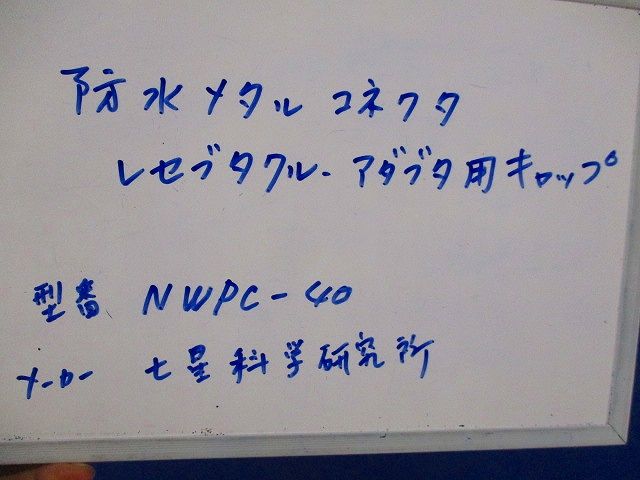 防水メタルコネクタ
レセブタクル・アダブタ用キャップ
型番 NWPC-40
メーカー 七星科学研究所